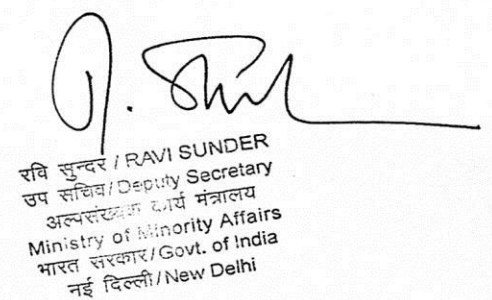 रवि सुन्दर / RAVI SUNDER
उप सचिव / Deputy Secretary
अल्पसंख्यक कार्य मंत्रालय
Ministry of Minority Affairs
भारत सरकार / Govt. of India
नई दिल्ली / New Delhi